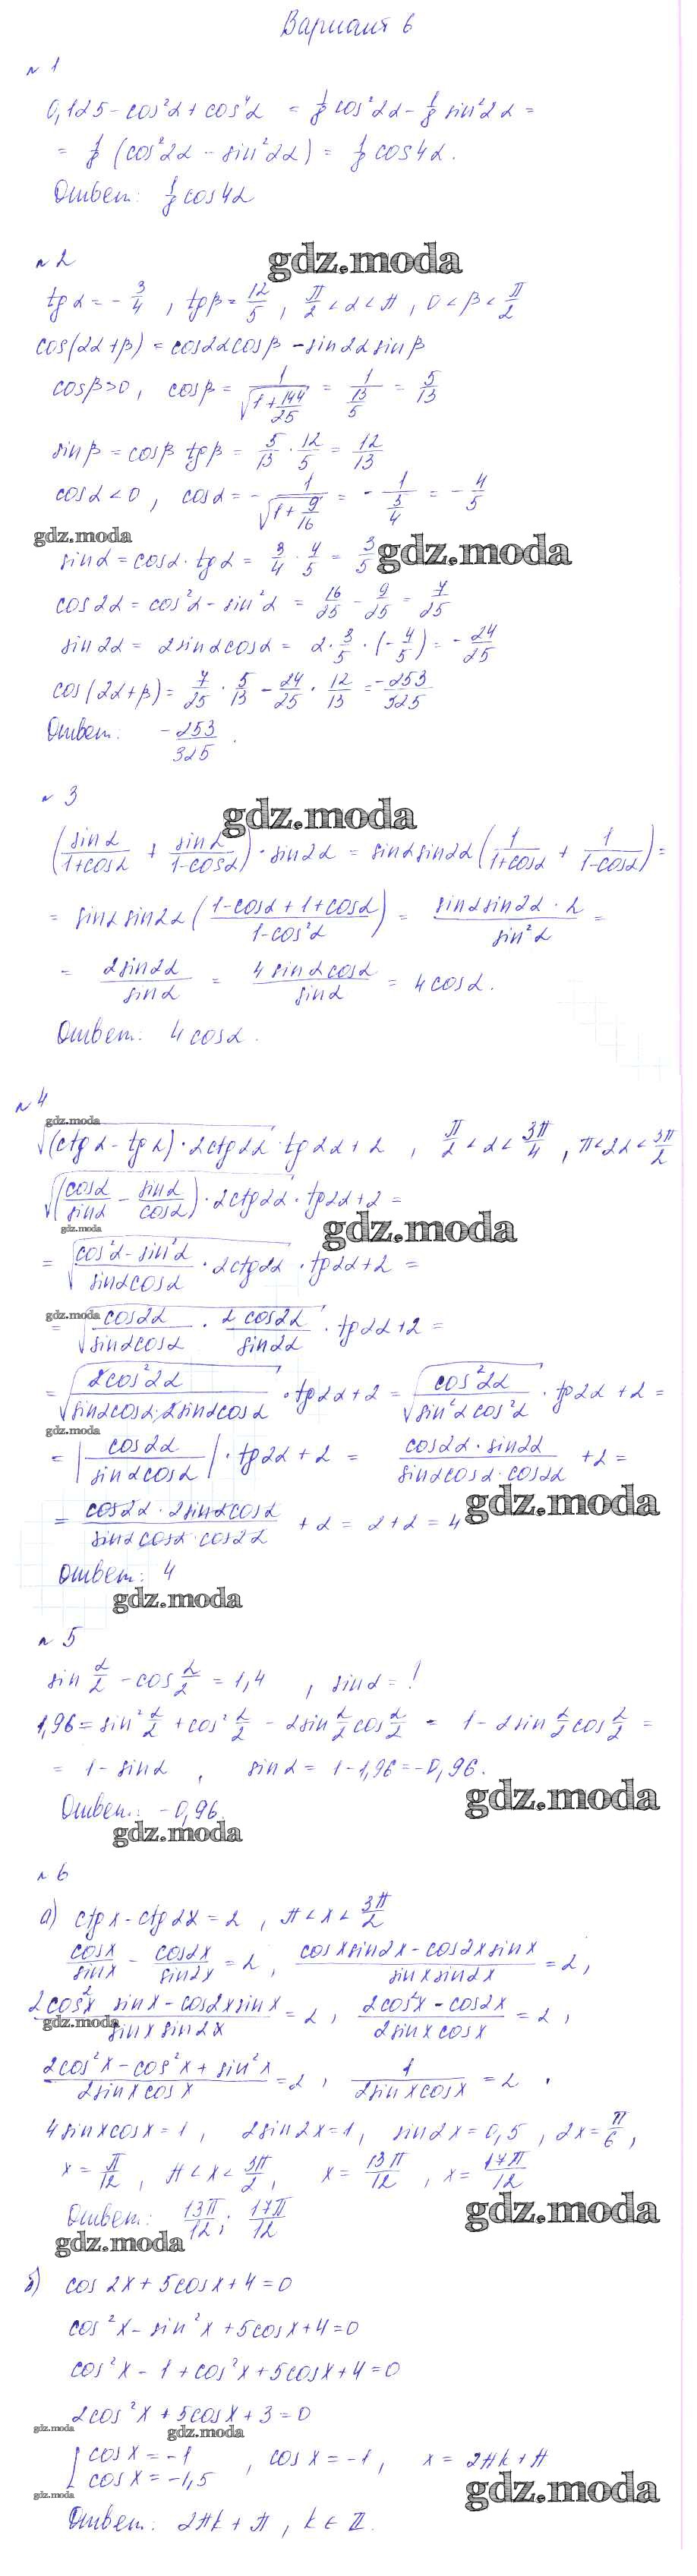 Вариант 6
№ 1
0,125 - cos²α + cos⁴α = 1/8 cos²2α - 1/8 sin²2α =
= 1/8 (cos²2α - sin²2α) = 1/8 cos4α.
Ответ: 1/8 cos4α
№ 2
gdz.moda
tgα = -3/4 , tgβ = 12/5 , π/2 < α < π , 0 < β < π/2
cos(2α+β) = cos2αcosβ - sin2αsinβ
cosβ>0, cosβ = 1/√(1+144/25) = 1/(13/5) = 5/13
sinβ = cosβ tgβ = 5/13 · 12/5 = 12/13
cosα<0, cosα = -1/√(1+9/16) = -1/(5/4) = -4/5
gdz.moda
sinα = cosα·tgα = 3/4 · 4/5 = 3/5
gdz.moda
cos2α = cos²α - sin²α = 16/25 - 9/25 = 7/25
sin2α = 2sinαcosα = 2·3/5·(-4/5) = -24/25
cos(2α+β) = 7/25 · 5/13 - 24/25 · 12/13 = -253/325
Ответ: -253/325.
№ 3
gdz.moda
(sinα/(1+cosα) + sinα/(1-cosα))·sin2α = sinαsin2α(1/(1+cosα) + 1/(1-cosα)) =
= sinαsin2α((1-cosα+1+cosα)/(1-cos²α)) = sinαsin2α·2/sin²α =
= 2sin2α/sinα = 4sinαcosα/sinα = 4cosα.
Ответ: 4cosα.
№ 4
gdz.moda
√((ctgα-tgα)·2ctg2α)·tg2α+2 , π/2 < α < 3π/4 , π<2α<3π/2
√((cosα/sinα - sinα/cosα)·2ctg2α)·tg2α+2 =
gdz.moda
gdz.moda
= √((cos²α-sin²α)/(sinαcosα)·2ctg2α)·tg2α+2 =
gdz.moda
= √(cos2α/(sinαcosα) · 2cos2α/sin2α)·tg2α+2 =
= √(2cos²2α/(sinαcosα·2sinαcosα))·tg2α+2 = √(cos²2α/(sin²αcos²α))·tg2α+2 =
gdz.moda
= |cos2α/(sinαcosα)|·tg2α+2 = cos2α·sin2α/(sinαcosα·cos2α) +2 =
gdz.moda
= cos2α·2sinαcosα/(sinαcosα·cos2α) + 2 = 2+2 = 4
Ответ: 4
gdz.moda
№ 5
sin α/2 - cos α/2 = 1,4 , sinα = !
1,96 = sin² α/2 + cos² α/2 - 2sin α/2 cos α/2 = 1 - 2sin α/2 cos α/2 =
= 1 - sinα , sinα = 1-1,96 = -0,96.
gdz.moda
Ответ: -0,96.
gdz.moda
№ 6
а) ctgx - ctg2x = 2 , π < x < 3π/2
cosx/sinx - cos2x/sin2x = 2 , (cosxsin2x - cos2xsinx)/(sinxsin2x) = 2,
(2cos²x sinx - cos2xsinx)/(sinxsin2x) = 2 , (2cos²x - cos2x)/(2sinxcosx) = 2 ,
gdz.moda
(2cos²x - cos²x + sin²x)/(2sinxcosx) = 2 , 1/(2sinxcosx) = 2 .
4sinxcosx = 1 , 2sin2x = 1, sin2x = 0,5 , 2x = π/6 ,
x = π/12 , π < x < 3π/2 , x = 13π/12 , x = 17π/12
gdz.moda
Ответ: 13π/12; 17π/12
gdz.moda
б) cos2x + 5cosx + 4 = 0
cos²x - sin²x + 5cosx + 4 = 0
cos²x - 1 + cos²x + 5cosx + 4 = 0
2cos²x + 5cosx + 3 = 0
gdz.moda
gdz.moda
[cosx = -1
cosx = -1,5 , cosx = -1 , x = 2πk+π
gdz.moda
gdz.moda
Ответ: 2πk + π , k ∈ Z.